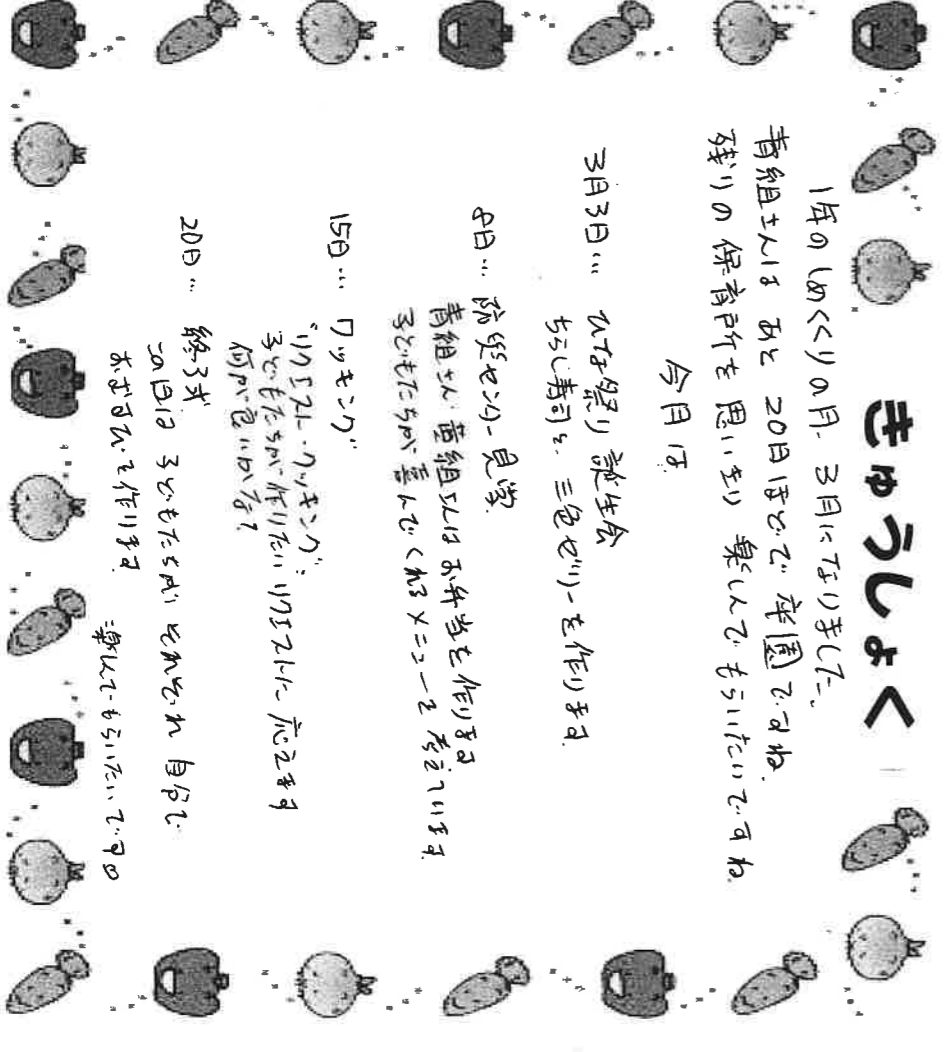 きゅうしょく
1年のしめくくりの月、3月になりました。
青組さんは あと 20日ほどで 卒園ですね。
残りの 保育所を 思いきり 楽しんで もらいたいですね。
今月は
3月3日… ひな祭り 誕生会
ちらし寿司と、三色ゼリーを作ります。
8日… 防災センター 見学
青組さん、黄組さんは お弁当を作ります
子どもたちが 喜んでくれるメニューを 考えています。
15日… クッキング
“リクエスト・クッキング”
子どもたちが作りたい リクエストに 応えます
何が良いかな?
20日… 終了式
この日は 子どもたちが それぞれ 自分で
おむすびを作ります
楽しんでもらいたいです。